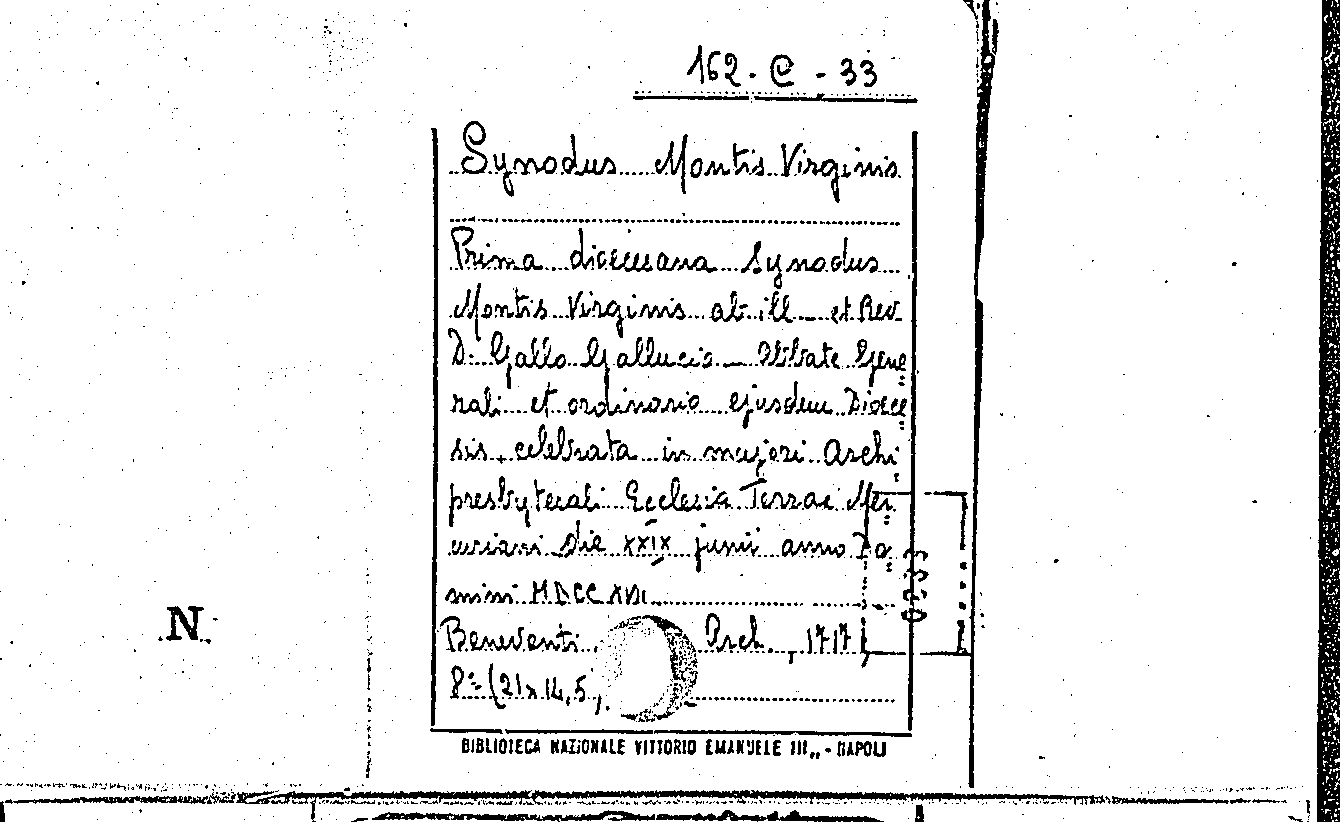 162. C - 33
Synodus Montis Virginis
Prima diocesana Synodus
Montis Virginis ab ill. et Rev.
D. Gallo Gallucio Abbate Gene
rali et ordinario ejusdem Dioce
sis, celebrata in majori Archi
presbyterali Ecclesia Terrae Mer
curiani die XXIX junii anno Do
mini MDCCXVII
N
Beneventi Arch., 1717,
8º (21x14,5)
BIBLIOTECA NAZIONALE VITTORIO EMANUELE III,, - NAPOLI